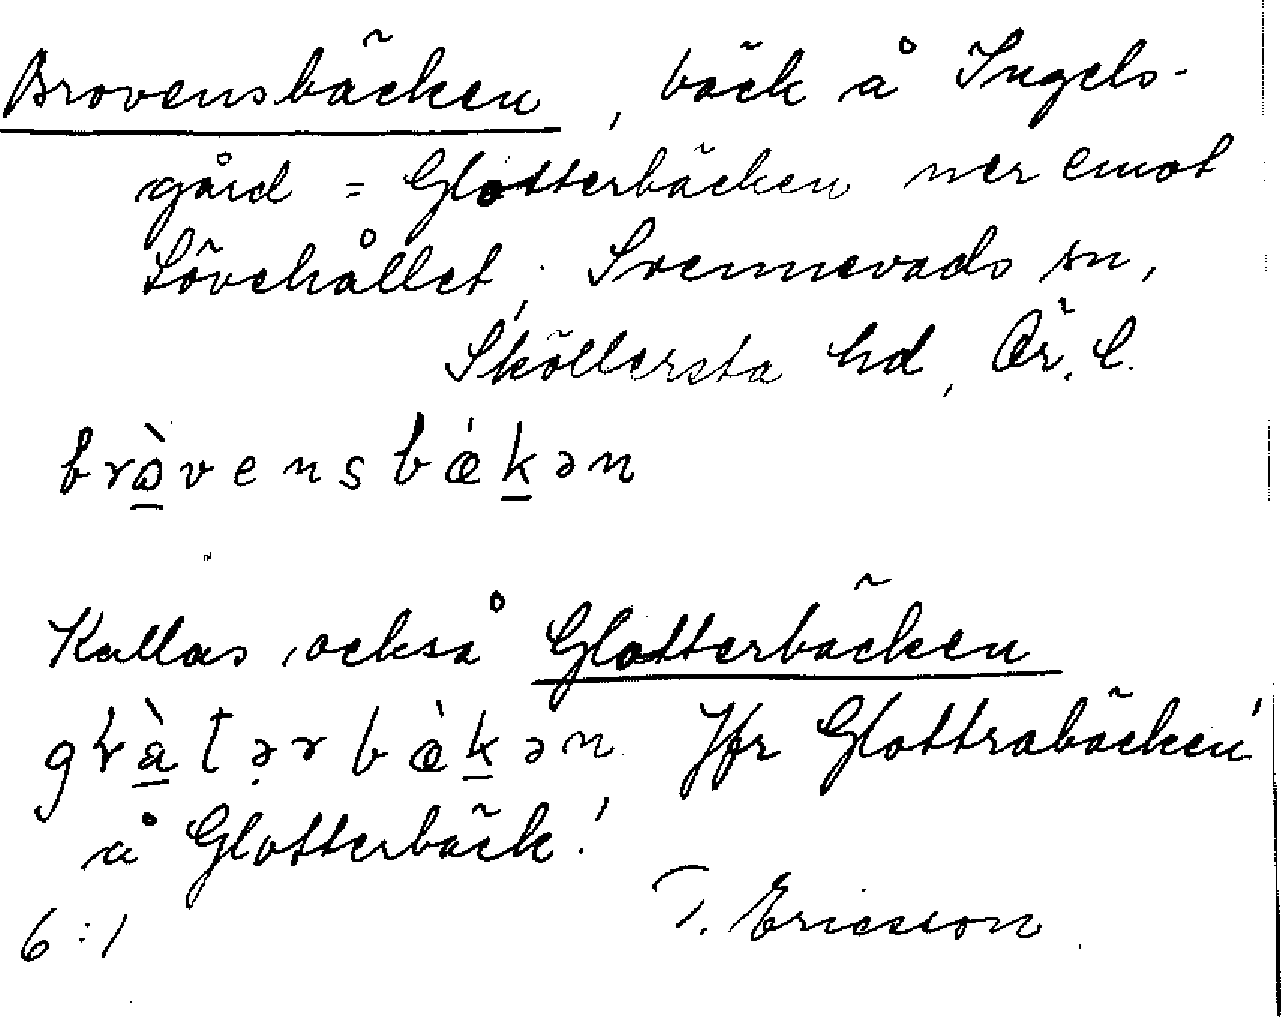 Brovensbäcken, bäck å Ingels-
gård = Glotterbäcken ner emot
Lövehållet, Svennevads sn,
Sköllersta hd, Ör. l.
brɔ̀vensbǽkən
Kallas också Glotterbäcken
Jfr Glottrabäcken
å Glotterbäck!
6:1 T. Ericsson